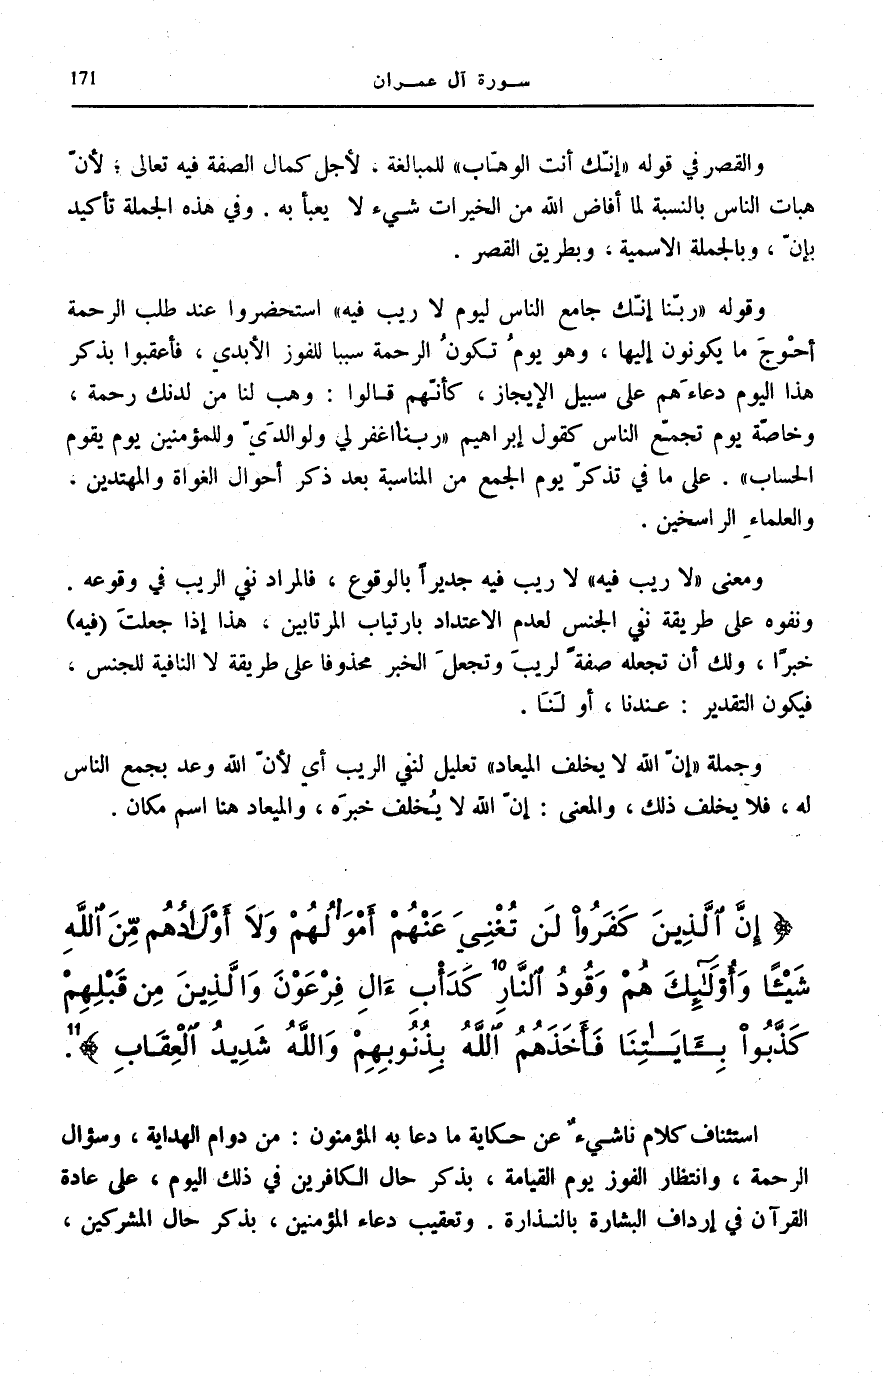 171 سورة آل عمران
والقصر في قوله «إنّك أنت الوهّاب» للمبالغة ، لأجل كمال الصفة فيه تعالى ؛ لأنّ
هبات الناس بالنسبة لما أفاض الله من الخيرات شيء لا يعبأ به . وفي هذه الجملة تأكيد
بإنّ ، وبالجملة الاسمية ، وبطريق القصر .
وقوله «ربّنا إنّك جامع الناس ليوم لا ريب فيه» استحضروا عند طلب الرحمة
أحْوجَ ما يكونون إليها ، وهو يومُ تكونُ الرحمة سببا للفوز الأبدي ، فأعقبوا بذكر
هذا اليوم دعاءَهم على سبيل الإيجاز ، كأنّهم قالوا : وهب لنا من لدنك رحمة ،
وخاصّة يوم تجمّع الناس كقول إبراهيم «ربنا اغفر لي ولوالدَيّ وللمؤمنين يوم يقوم
الحساب» . على ما في تذكّر يوم الجمع من المناسبة بعد ذكر أحوال الغواة والمهتدين ،
والعلماء الراسخين .
ومعنى «لا ريب فيه» لا ريب فيه جديراً بالوقوع ، فالمراد نفي الريب في وقوعه .
ونفوه على طريقة نفي الجنس لعدم الاعتداد بارتياب المرتابين ، هذا إذا جعلتَ (فيه)
خبرًا ، ولك أن تجعله صفةً لريبَ وتجعلَ الخبر محذوفا على طريقة لا النافية للجنس ،
فيكون التقدير : عندنا ، أو لَنَا .
وجملة «إنّ الله لا يخلف الميعاد» تعليل لنفي الريب أي لأنّ الله وعد بجمع الناس
له ، فلا يخلف ذلك ، والمعنى : إنّ الله لا يُخلف خبرَه ، والميعاد هنا اسم مكان .
﴿ إِنَّ ٱلَّذِينَ كَفَرُواْ لَن تُغْنِيَ عَنْهُمْ أَمْوَٰلُهُمْ وَلَا أَوْلَٰدُهُم مِّنَ ٱللَّهِ
شَيْئًا وَأُوْلَٰٓئِكَ هُمْ وَقُودُ ٱلنَّارِ 10 كَدَأْبِ ءَالِ فِرْعَوْنَ وَالَّذِينَ مِن قَبْلِهِمْ
كَذَّبُواْ بِـَٔايَـٰتِنَا فَأَخَذَهُمُ ٱللَّهُ بِذُنُوبِهِمْ وَاللَّهُ شَدِيدُ ٱلْعِقَابِ ﴾ 11 .
استئناف كلام ناشيءٌ عن حكاية ما دعا به المؤمنون : من دوام الهداية ، وسؤال
الرحمة ، وانتظار الفوز يوم القيامة ، بذكر حال الكافرين في ذلك اليوم ، على عادة
القرآن في إرداف البشارة بالنذارة . وتعقيب دعاء المؤمنين ، بذكر حال المشركين ،